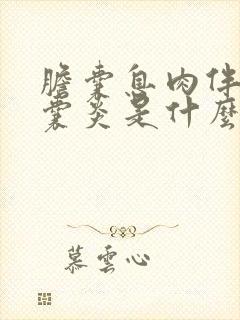 膽囊息肉伴
囊炎是什麼
慕雲心